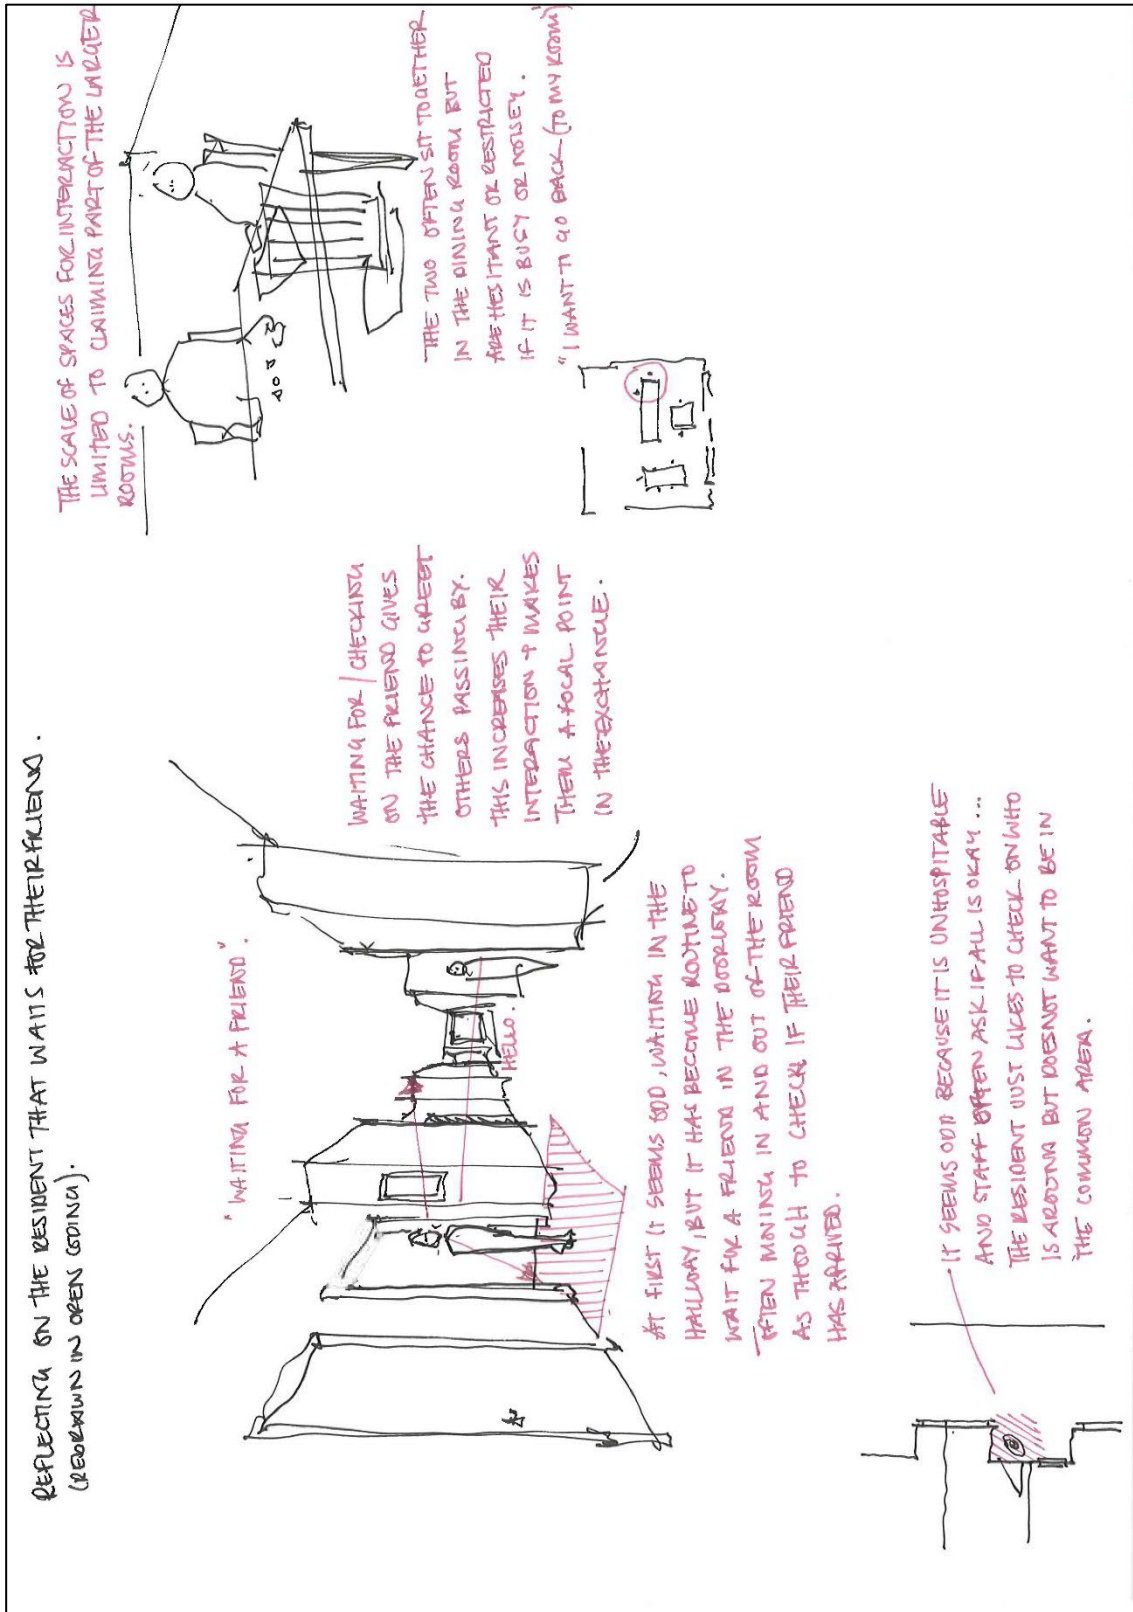 REFLECTING ON THE RESIDENT THAT WAITS FOR THEIR FRIEND.
(REDRAWN IN OPEN CODING).
"WAITING FOR A FRIEND".
HELLO.
WAITING FOR / CHECKING
ON THE FRIEND GIVES
THE CHANCE TO GREET
OTHERS PASSING BY.
THIS INCREASES THEIR
INTERACTION + MAKES
THEM A FOCAL POINT
IN THE EXCHANGE.
AT FIRST IT SEEMS ODD, WAITING IN THE
HALLWAY, BUT IT HAS BECOME ROUTINE TO
WAIT FOR A FRIEND IN THE DOORWAY.
OFTEN MOVING IN AND OUT OF THE ROOM
AS THOUGH TO CHECK IF THEIR FRIEND
HAS ARRIVED.
IT SEEMS ODD BECAUSE IT IS UNHOSPITABLE
AND STAFF OFTEN ASK IF ALL IS OKAY...
THE RESIDENT JUST LIKES TO CHECK ON WHO
IS AROUND BUT DOES NOT WANT TO BE IN
THE COMMON AREA.
THE SCALE OF SPACES FOR INTERACTION IS
LIMITED TO CLAIMING PART OF THE LARGER
ROOMS.
THE TWO OFTEN SIT TOGETHER
IN THE DINING ROOM BUT
ARE HESITANT OR RESTRICTED
IF IT IS BUSY OR NOISEY.
"I WANT TO GO BACK (TO MY ROOM)